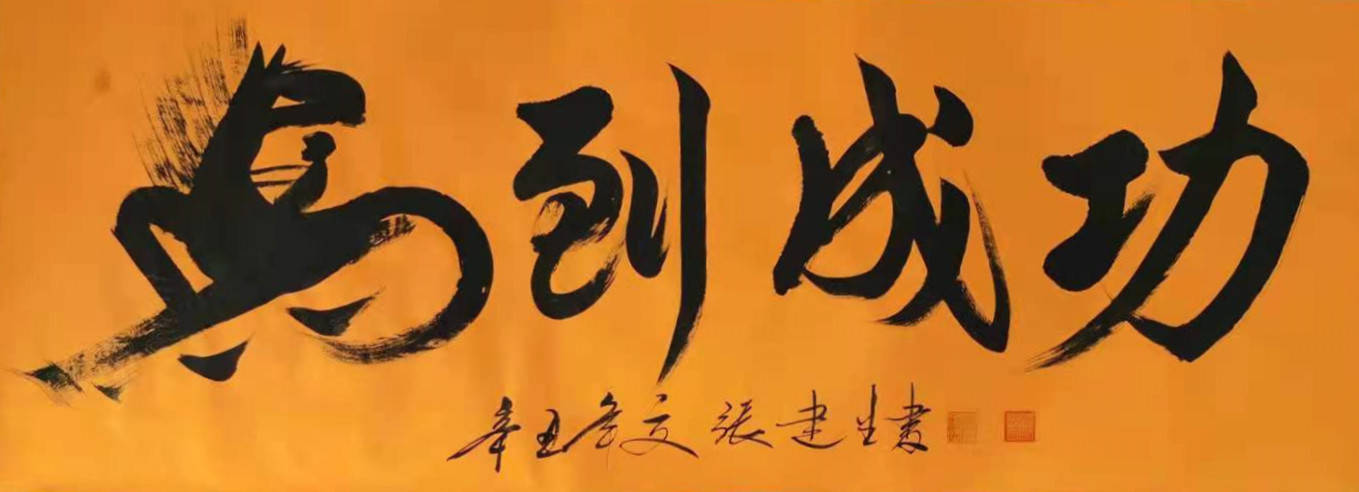 馬到成功
辛丑年文張建生書